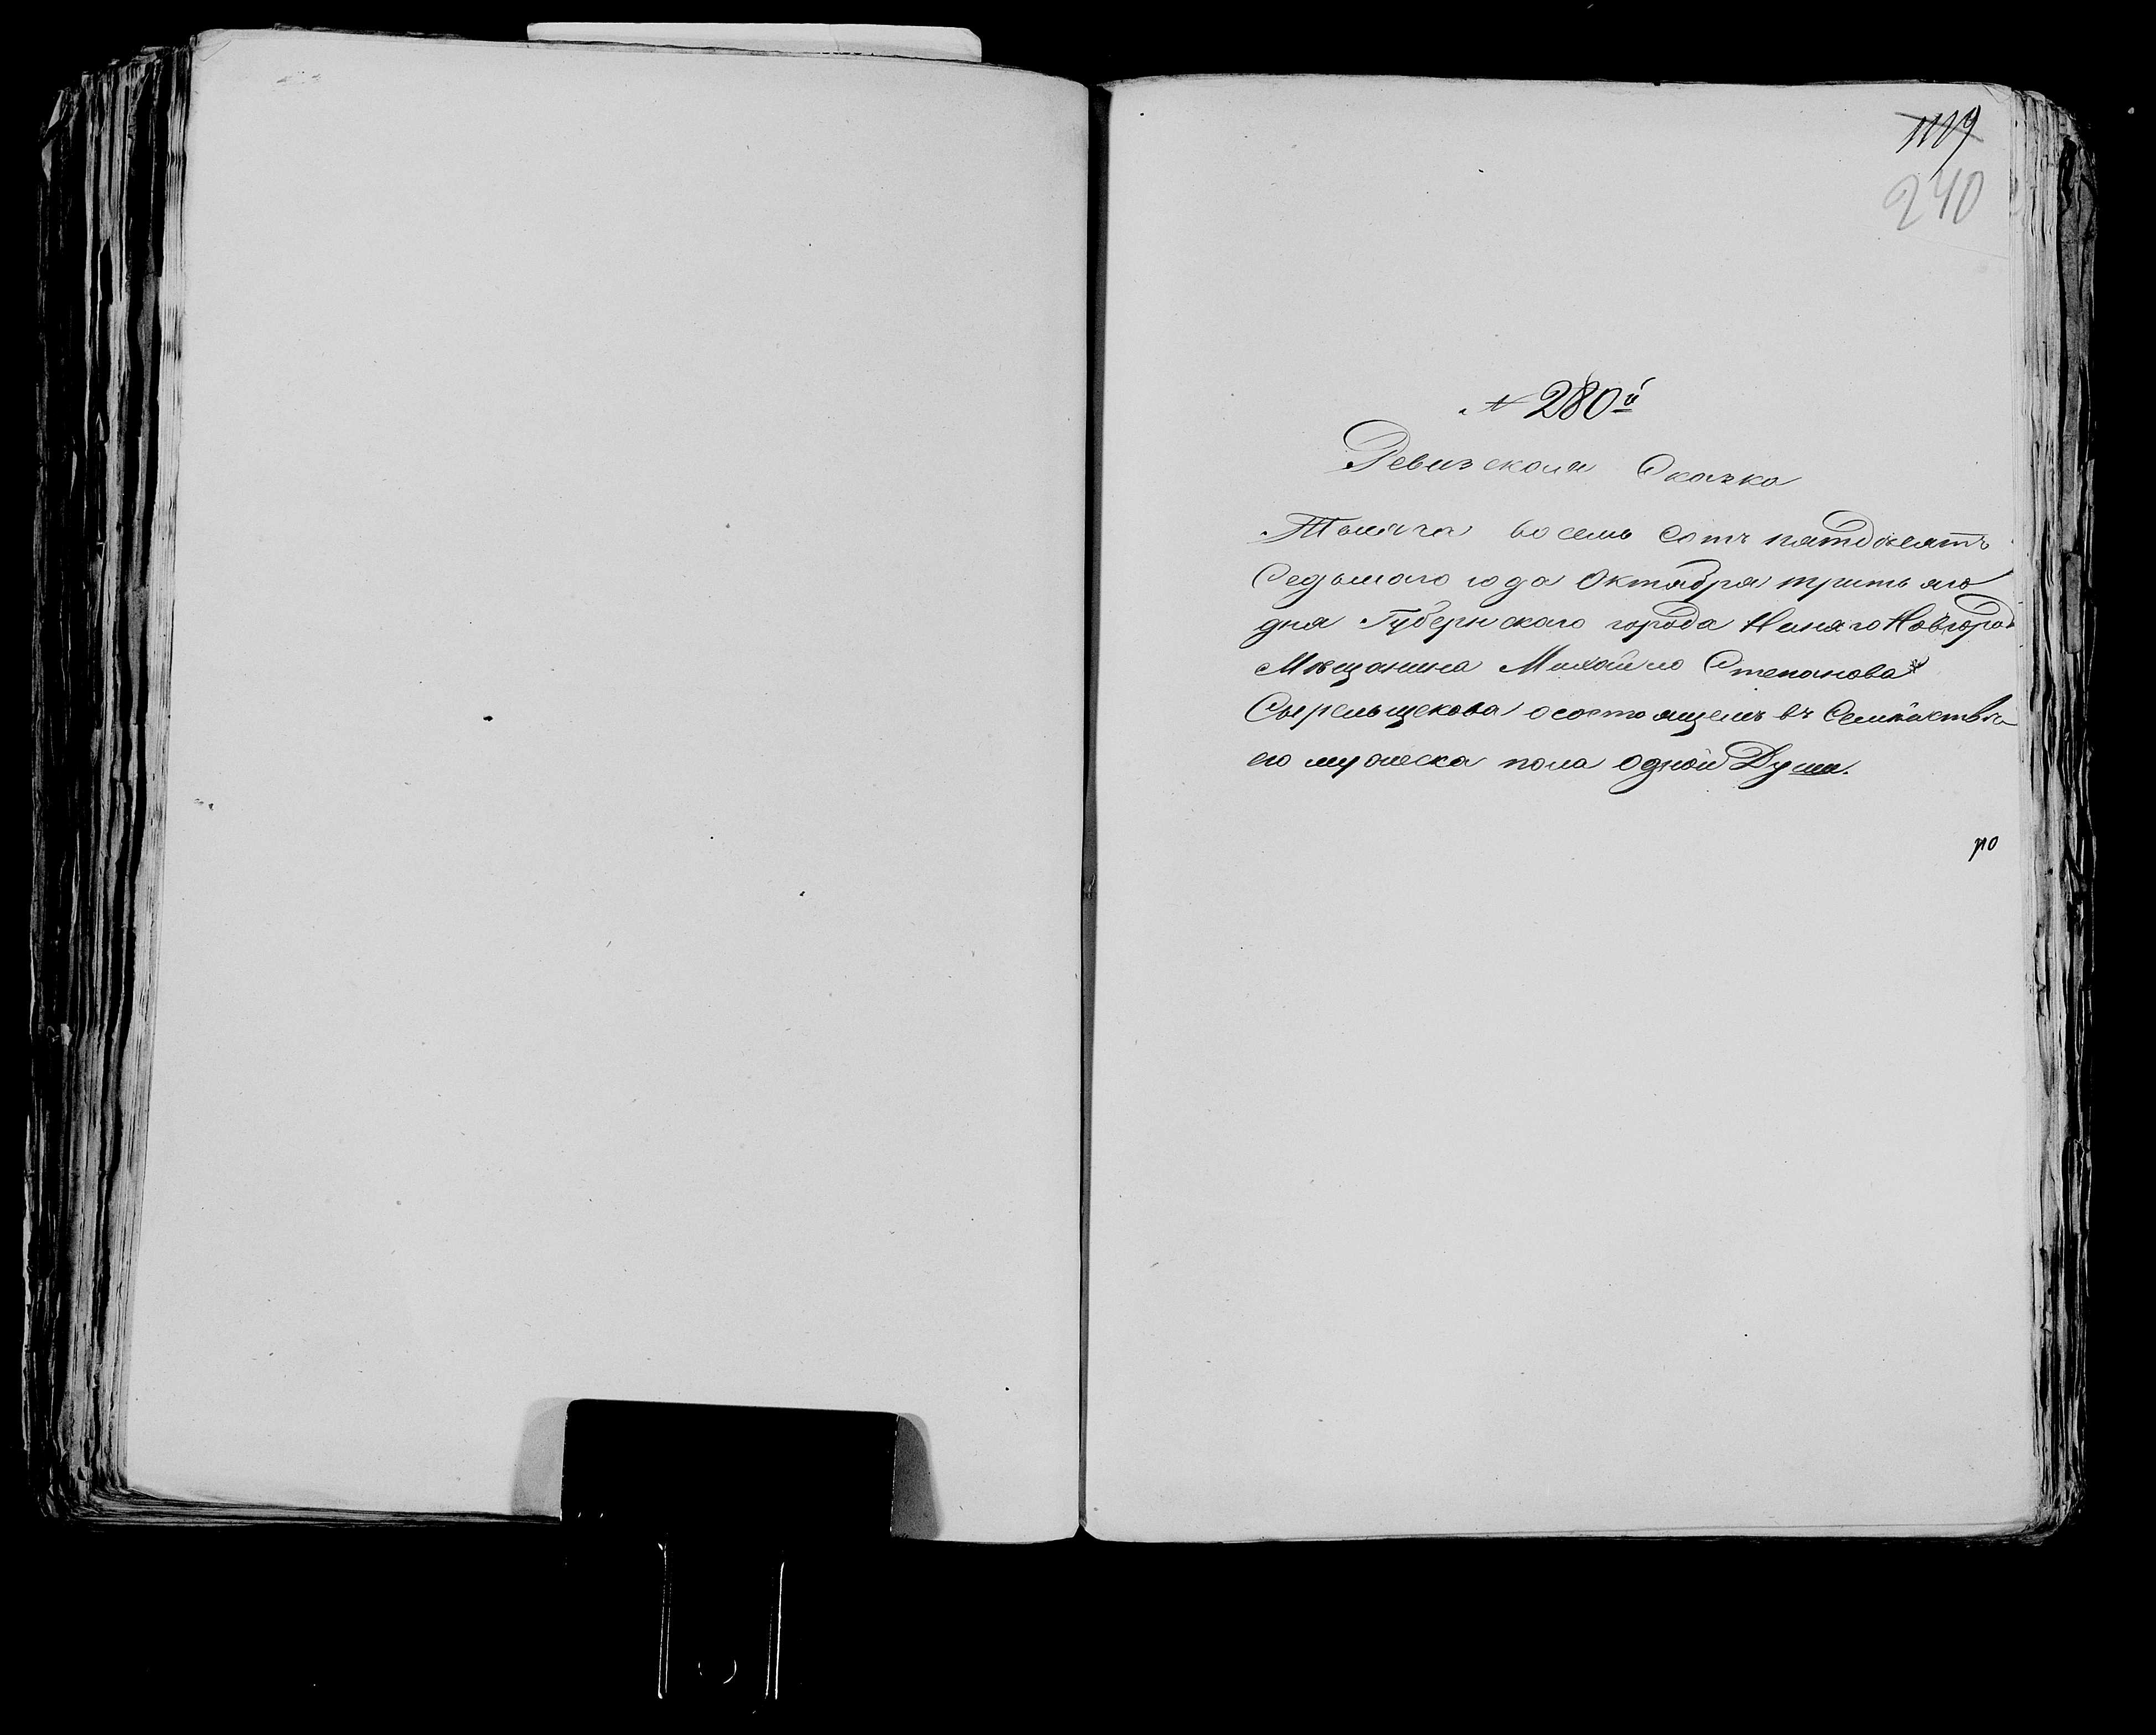 1119
240
№ 280й
Ревизская Сказка
Тысяча восемь сотъ пятдесятъ
Седьмаго года Октября третьяго
дня Губернскаго города Нижняго Новгорода
Мещанина Михайло Степанова
осостоящемъ въ Семействе
его мужеска пола одной Души.
ро